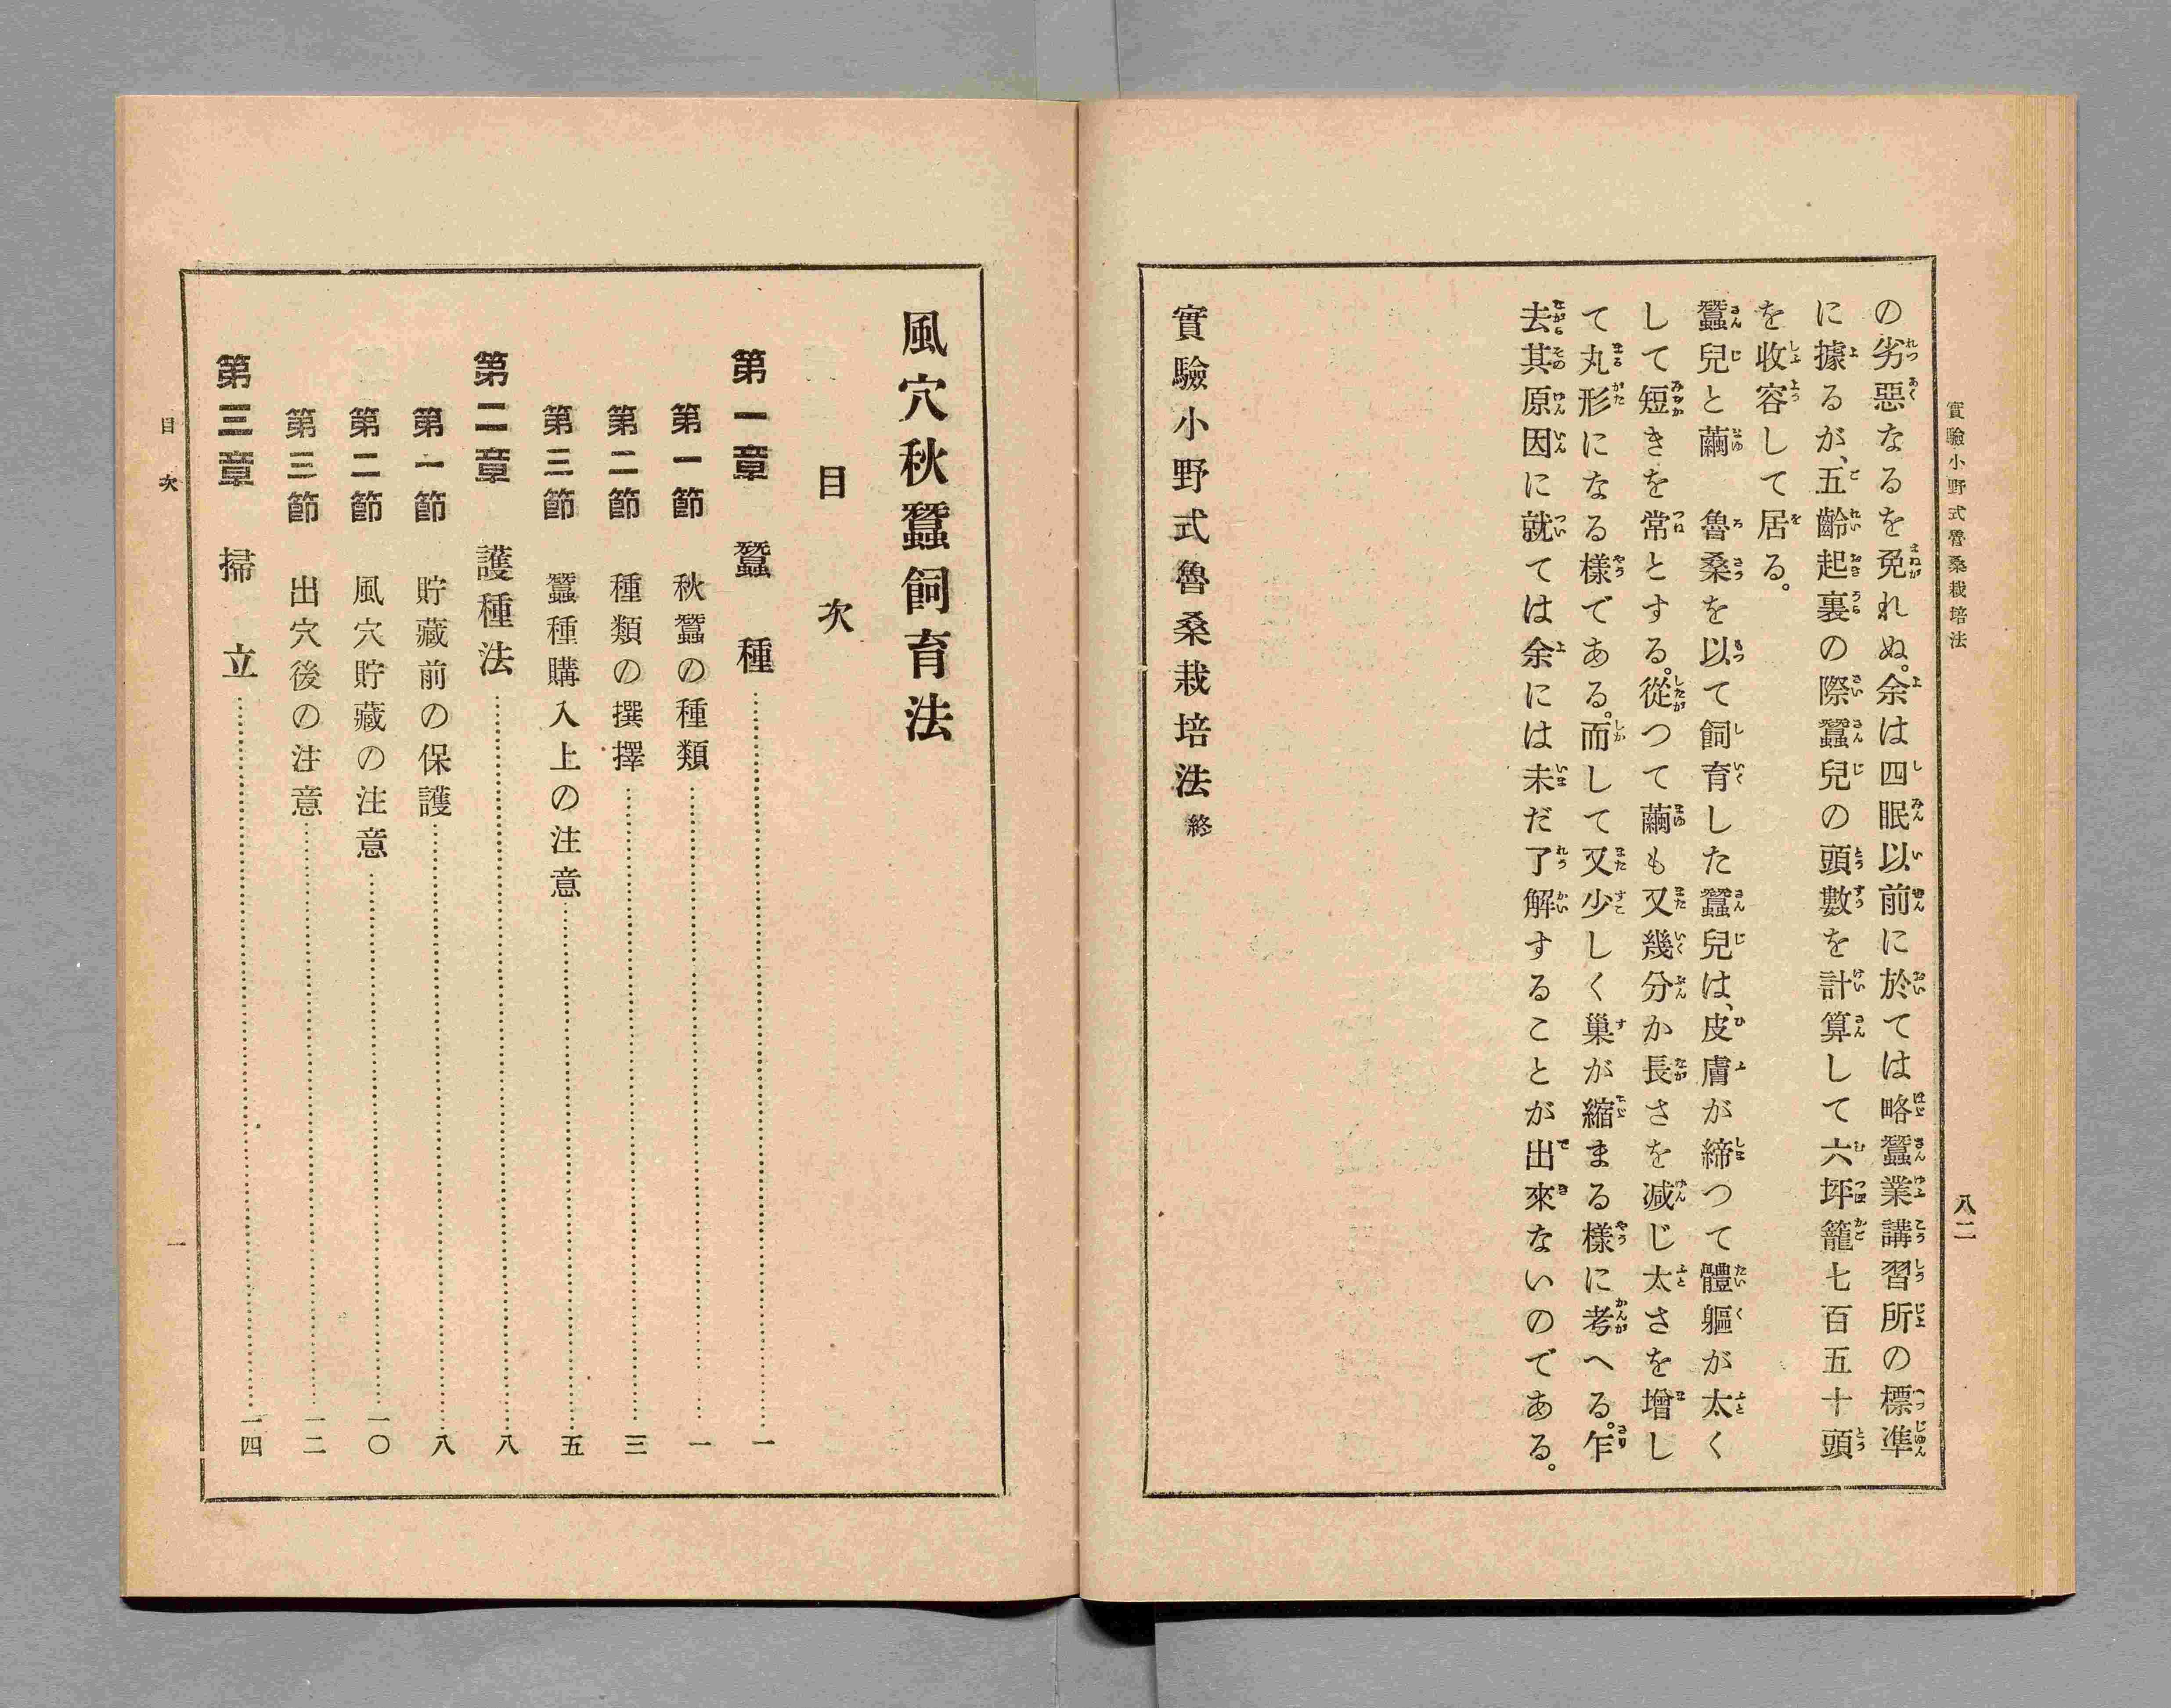 實驗小野式魯桑栽培法
八二
の劣惡なるを免れぬ。余は四眠以前に於ては略蠶業講習所の標準
に據るが、五齡起裏の際蠶兒の頭數を計算して六坪籠七百五十頭
を收容して居る。
蠶兒と繭　魯桑を以て飼育した蠶兒は、皮膚が締つて體軀が太く
して短きを常とする。從つて繭も又幾分か長さを減じ太さを增し
て丸形になる樣である。而して又少しく巢が縮まる樣に考へる。乍
去其原因に就ては余には未だ了解することが出來ないのである。
實驗小野式魯桑栽培法終
風穴秋蠶飼育法
目次
第一章　蠶種……一
第一節　秋蠶の種類……一
第二節　種類の撰擇……三
第三節　蠶種購入上の注意……五
第二章　護種法……八
第一節　貯藏前の保護……八
第二節　風穴貯藏の注意……一〇
第三節　出穴後の注意……一二
第三章　掃立……一四
目次
一